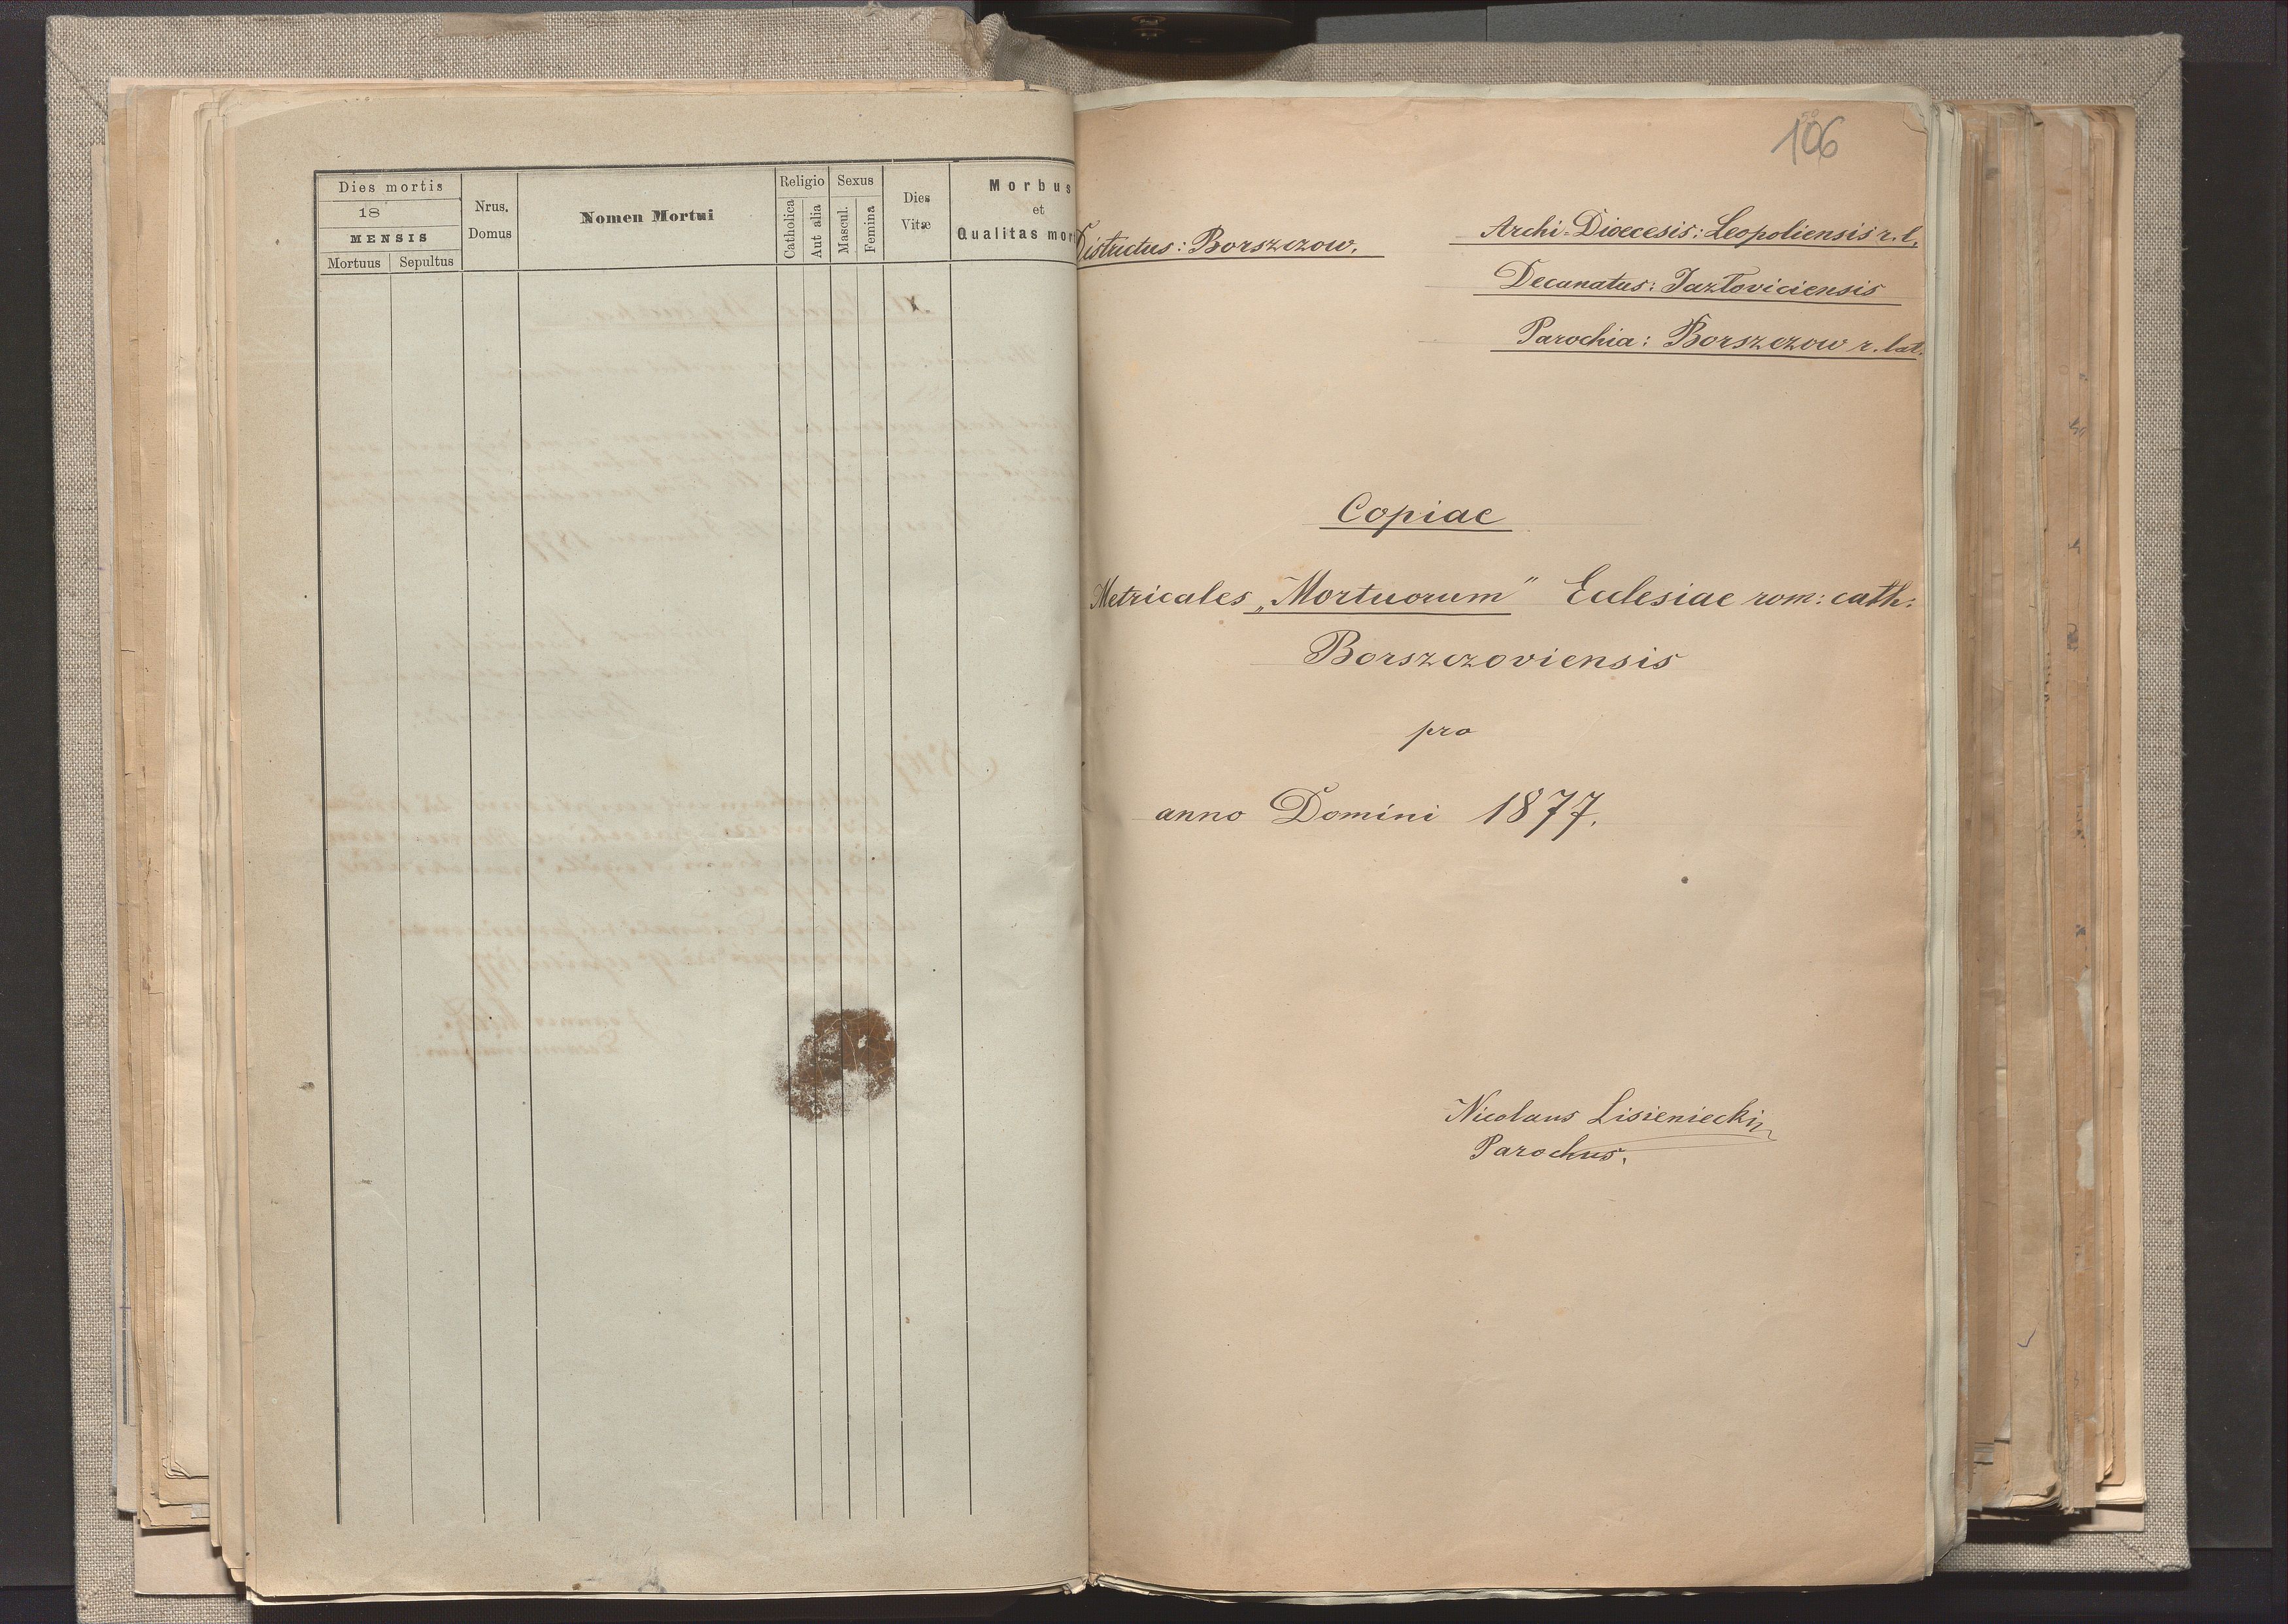 Dies mortis
18
MENSIS
Mortuus
Sepultus
Nrus.
Domus
Nomen Mortui
Religio
Catholica
Aut alia
Sexus
Mascul.
Femina
Dies
Vitæ
Morbus
et
Qualitas mor
106
Districtus: Borszczow.
Archi-Dioecesis: Leopoliensis r. l.
Decanatus: Jazłoviciensis
Parochia: Borszczow r. lat.
Copiae
Metricales „Mortuorum" Eclesiae rom: cath:
Borszczoviensis
pro
anno Domini 1877.
Nicolaus Lisieniecki
Parochus.